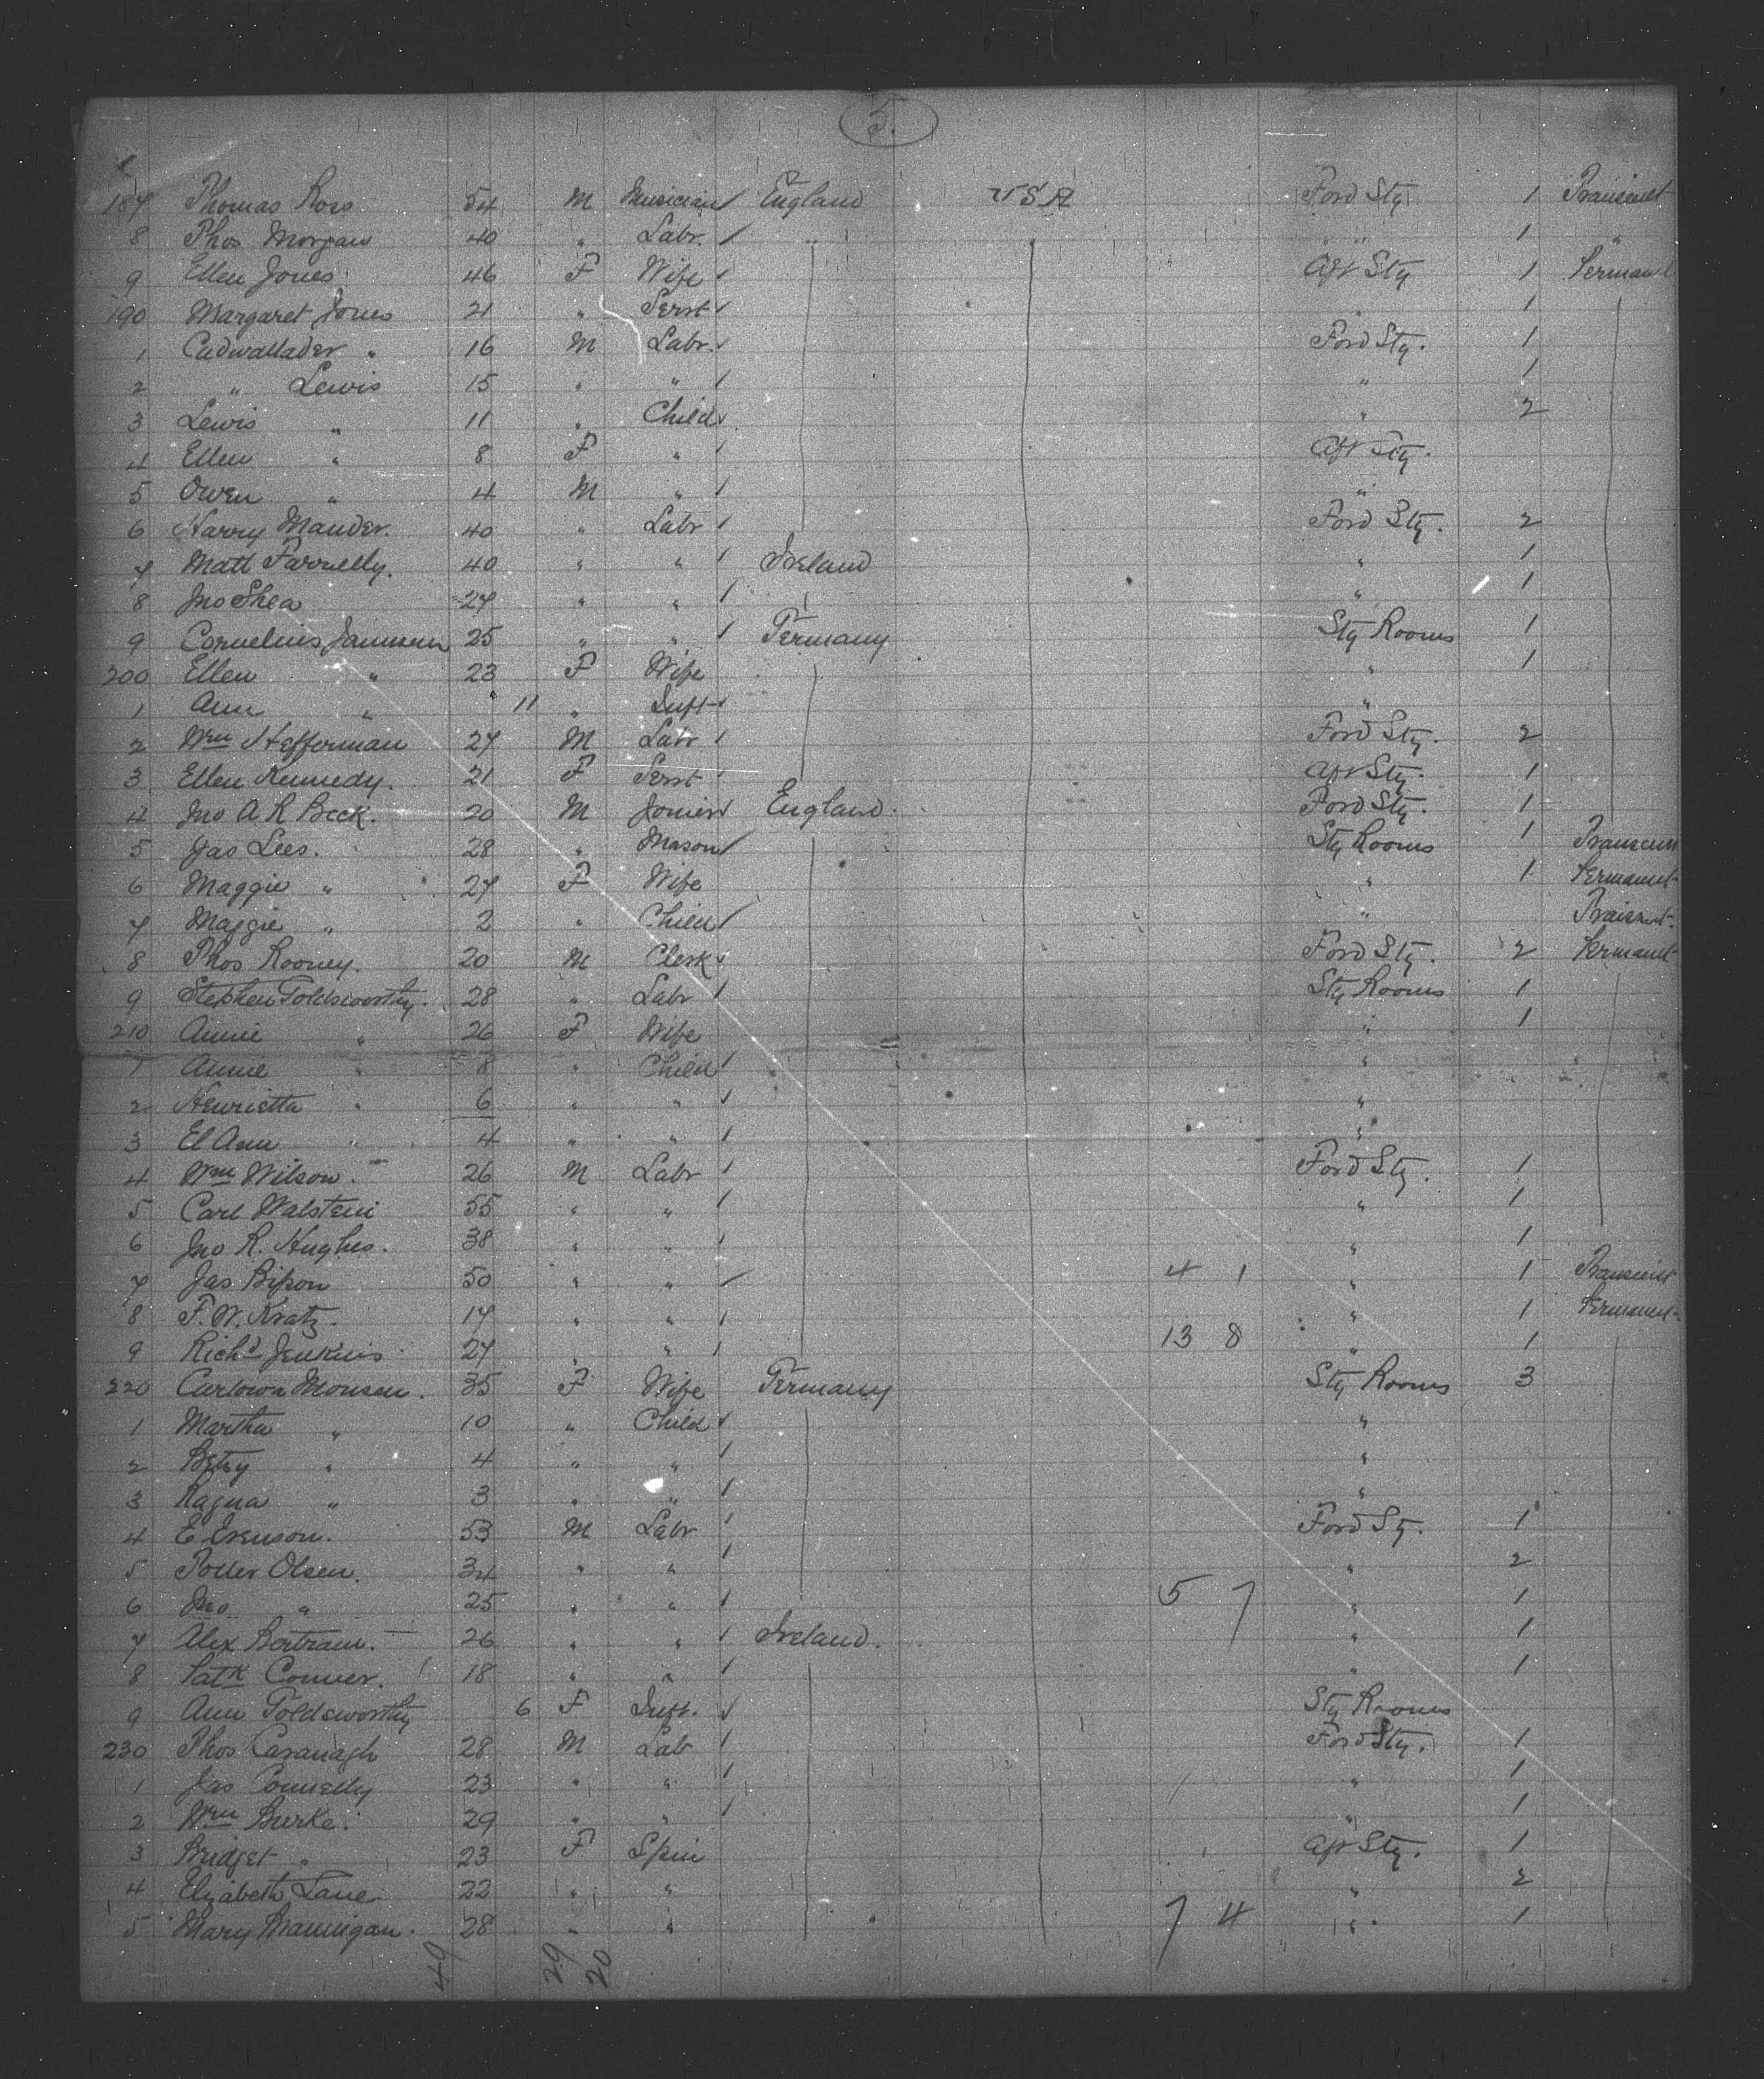 5.
187 Thomas Ross 54 M Musician / England USA Ford Stg 1 Transient
8 Thos Morgan 40 " Labr. / " " " " 1 "
9 Ellen Jones 46 F Wife / Aft Stg 1 Permant
190 Margaret Jones 21 " Servt / " 1
1 Cadwallader " 16 M Labr. / Ford Stg. 1
2 " Lewis 15 " " / " 1
3 Lewis " 11 " Child / " 2
4 Ellen " 8 F " / Aft Stg.
5 Owen " 4 M " / "
6 Harry Mander. 40 " Labr / Ford Stg. 2
7 Matt Farrelly. 40 " " / Ireland " 1
8 Jno Shea 27 " " / " 1
9 Cornelius Jannsen 25 " " / Germany Stg Rooms 1
200 Ellen " 23 F Wife " 1
1 Ann " 11 " Inft / "
2 Wm Hefferman 27 M Labr / Ford Stg. 2
3 Ellen Kennedy. 21 F Servt / Aft Stg. 1
4 Jno A R Beck. 20 M Joiner / England. Ford Stg. 1
5 Jas Lees. 28 " Mason / Stg Rooms 1 Transient
6 Maggie " 27 F Wife " 1 Permanet
7 Maggie " 2 " Child / " Transnt.
8 Thos Rooney. 20 M Clerk / Ford Stg. 2 Permanet
9 Stephen Goldsworthy. 28 " Labr / Stg Rooms 1
210 Annie " 26 F Wife " 1
1 Annie " 8 " Child / "
2 Henrietta " 6 " " / "
3 El Ann " 4 " " / "
4 Wm Wilson. 26 M Labr / Ford Stg. 1
5 Carl Walstein 55 " " / " 1
6 Jno R. Hughes. 38 " " / " 1
7 Jas Bipson 50 " " / 4 1 " 1 Transient
8 F. W. Kratz. 17 " " / " 1 Permanet
9 Richd Jenkins 27 " " / 13 8 " 1
220 Carlowa Monsen. 35 F Wife Germany Stg Rooms 3
1 Martha " 10 " Child / "
2 Betsy " 4 " " / "
3 Ragna " 3 " " / "
4 E Evenson. 53 M Labr / Ford Stg. 1
5 Potter Olsen. 34 " " / " 2
6 Jno " 25 " " / 5 7 " 1
7 Alex Bertram. 26 " " / Ireland. " 1
8 Patk Conner. 18 " " / " 1
9 Ann Goldsworthy 6 F Inft. / Stg Rooms
230 Thos Cavanagh 28 M Labr / Ford Stg. 1
1 Jas Connelly 23 " " / " 1
2 Wm Burke. 29 " " / " 1
3 Bridget " 23 F Spin Aft Stg. 1
4 Elizabeth Lane 22 " " " 2
5 Mary Mannigan. 28 " " 7 4 " 1
49 29 20